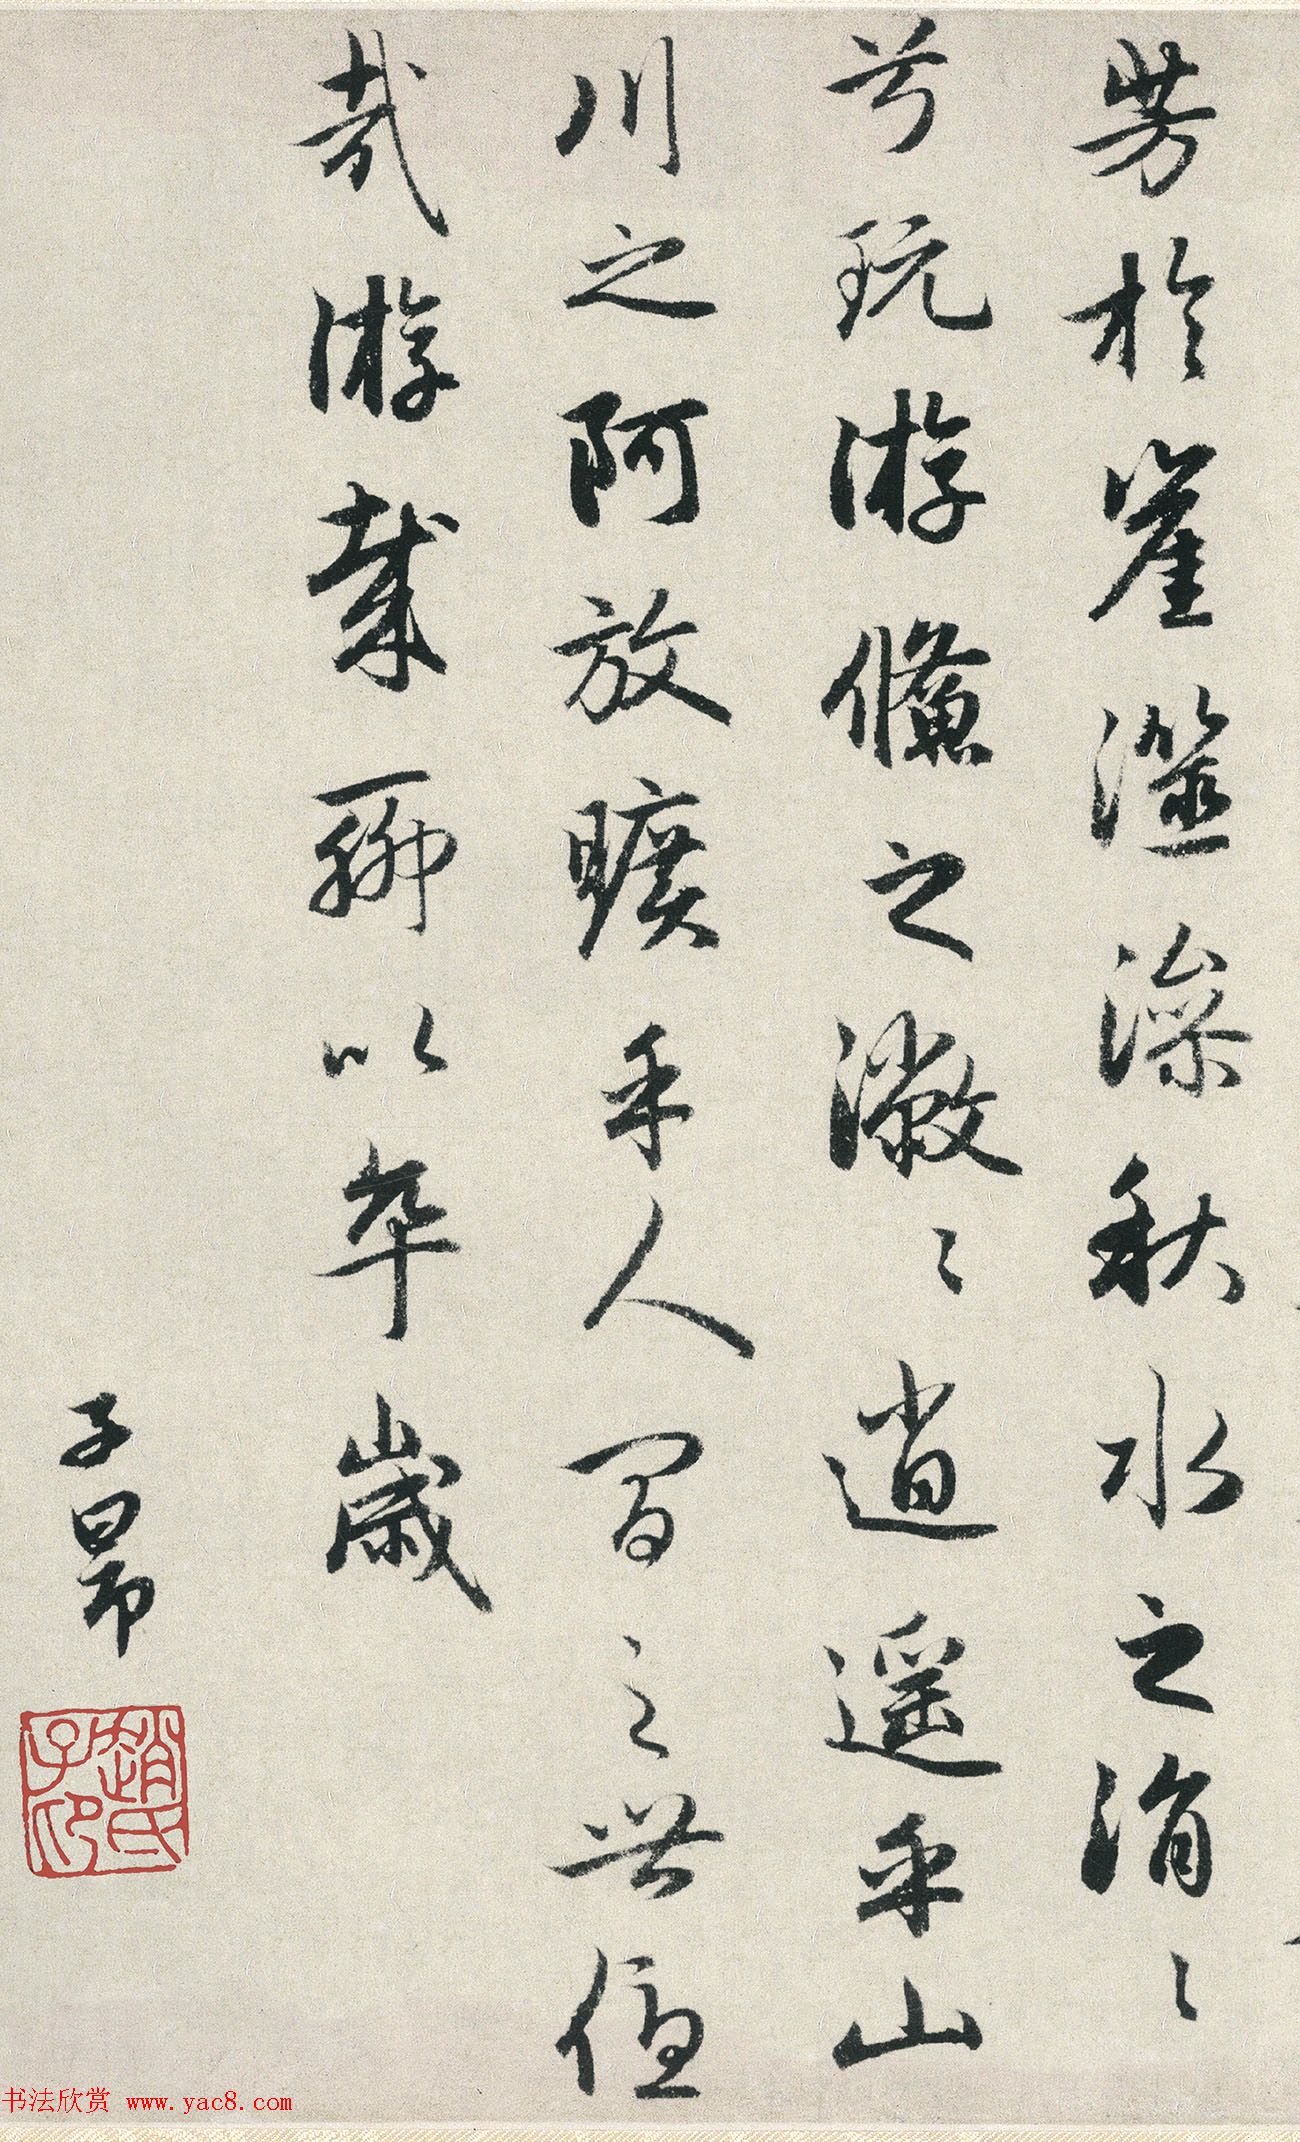 茇於崖澨澡秋水之涓〻
兮玩游儵之潎〻逍遥乎山
川之阿放曠乎人間之世優
哉游哉聊以卒歲
子昂
趙氏子印
书法欣赏 www.yac8.com